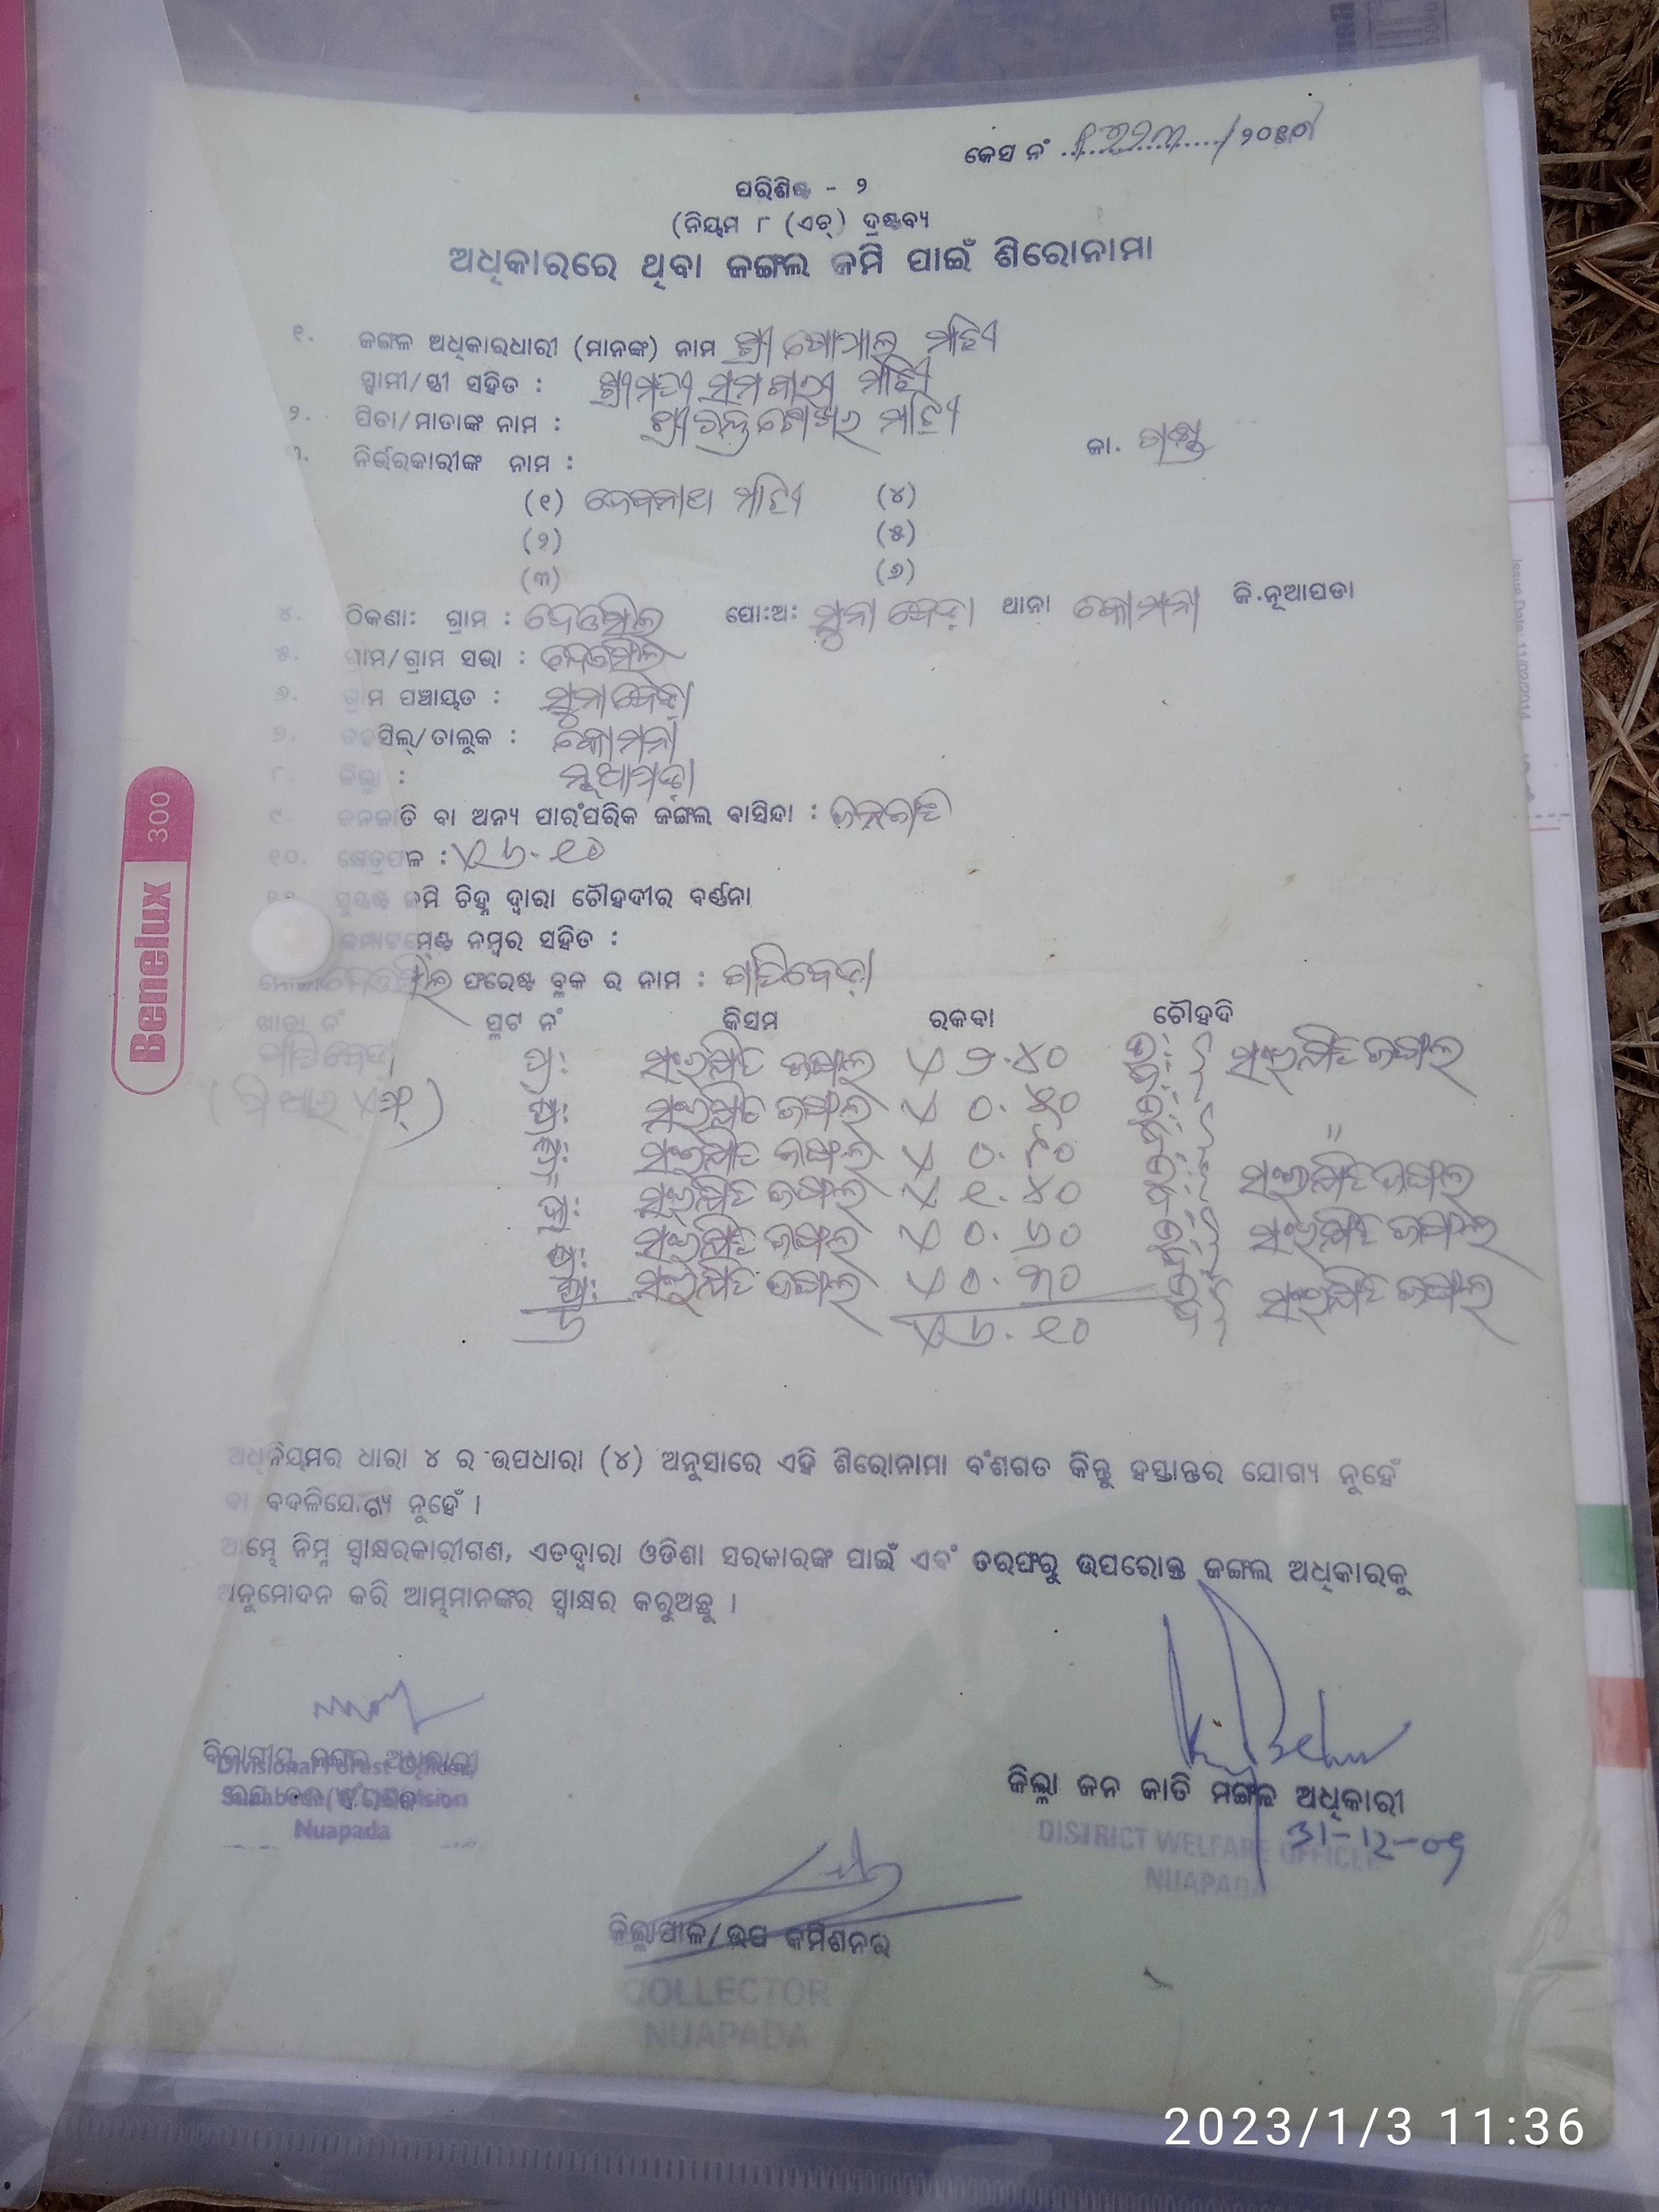 କେସ ନଂ
ପରିଶିଷ୍ଟ - ୨
(ନିୟମ ୮ (ଏଚ୍) ଦ୍ରଷ୍ଟବ୍ୟ
ଅଧିକାରରେ ଥିବା ଜଙ୍ଗଲ ଜମି ପାଇଁ ଶିରୋନାମା
୧. ଜଙ୍ଗଲ ଅଧିକାରଧାରୀ (ମାନଙ୍କ) ନାମ ଶ୍ରୀ ଗୋପାଲ ମାଝୀ
ସ୍ୱାମୀ/ସ୍ତ୍ରୀ ସହିତ : ଶ୍ରୀମତୀ ମାଝୀ
୨. ପିତା/ମାତାଙ୍କ ନାମ : ଶ୍ରୀ ମାଝୀ
ଜା. ଗଣ୍ଡ
୩. ନିର୍ଭରକାରୀଙ୍କ ନାମ :
(୧) ଦେବନାଥ ମାଝୀ (୪)
(୨) (୫)
(୩) (୬)
୪. ଠିକଣା: ଗ୍ରାମ : ପୋ:ଅ: ସୁନାବେଡ଼ା ଥାନା କୋମନା ଜି.ନୂଆପଡା
୫. ଗ୍ରାମ/ଗ୍ରାମ ସଭା :
୬. ଗ୍ରାମ ପଞ୍ଚାୟତ : ସୁନାବେଡ଼ା
୭. ତହସିଲ୍/ତାଲୁକ : କୋମନା
୮. ଜିଲ୍ଲା : ନୂଆପଡ଼ା
୯. ଜନଜାତି ବା ଅନ୍ୟ ପାରଂପରିକ ଜଙ୍ଗଲ ବାସିନ୍ଦା : ଜନଜାତି
୧୦. କ୍ଷେତ୍ରଫଳ : ୬.୧୦
୧୧. ସୁସ୍ପଷ୍ଟ ଜମି ଚିହ୍ନ ଦ୍ୱାରା ଚୌହଦୀର ବର୍ଣ୍ଣନା
କମ୍ପାଟମେଣ୍ଟ ନମ୍ବର ସହିତ :
ଫରେଷ୍ଟ ବ୍ଲକ ର ନାମ : ପାତିବେଡ଼ା
ଖାତା ନଂ ପ୍ଲଟ ନଂ କିସମ ରକବା ଚୌହଦି
ପାତିବେଡ଼ା ପ୍ର: ସଂରକ୍ଷିତ ଜଙ୍ଗଲ ୨.୪୦ ସଂରକ୍ଷିତ ଜଙ୍ଗଲ
(ପି ଆର ଏଫ୍) ପ୍ର: ସଂରକ୍ଷିତ ଜଙ୍ଗଲ ୦.୫୦
ପ୍ର: ସଂରକ୍ଷିତ ଜଙ୍ଗଲ "
ପ୍ର: ସଂରକ୍ଷିତ ଜଙ୍ଗଲ ୧.୪୦ ସଂରକ୍ଷିତ ଜଙ୍ଗଲ
ପ୍ର: ସଂରକ୍ଷିତ ଜଙ୍ଗଲ ୦.୬୦ ସଂରକ୍ଷିତ ଜଙ୍ଗଲ
ପ୍ର: ସଂରକ୍ଷିତ ଜଙ୍ଗଲ ୦.୩୦ ସଂରକ୍ଷିତ ଜଙ୍ଗଲ
୬ ୬.୧୦
ଅଧିନିୟମର ଧାରା ୪ ର ଉପଧାରା (୪) ଅନୁସାରେ ଏହି ଶିରୋନାମା ବଂଶଗତ କିନ୍ତୁ ହସ୍ତାନ୍ତର ଯୋଗ୍ୟ ନୁହେଁ
ବା ବଦଳିଯୋଗ୍ୟ ନୁହେଁ ।
ଆମ୍ଭେ ନିମ୍ନ ସ୍ୱାକ୍ଷରକାରୀଗଣ, ଏତଦ୍ୱାରା ଓଡିଶା ସରକାରଙ୍କ ପାଇଁ ଏବଂ ତରଫରୁ ଉପରୋକ୍ତ ଜଙ୍ଗଲ ଅଧିକାରକୁ
ଅନୁମୋଦନ କରି ଆମ୍ଭମାନଙ୍କର ସ୍ୱାକ୍ଷର କରୁଅଛୁ ।
ବିଭାଗୀୟ ଜଙ୍ଗଲ ଅଧିକାରୀ
Divisional Forest Officer
Nuapada
ଜିଲ୍ଲା ଜନ ଜାତି ମଙ୍ଗଳ ଅଧିକାରୀ
31-12-09
DISTRICT WELFARE OFFICER
NUAPADA
ଜିଲ୍ଲାପାଳ/ଉପ କମିଶନର
COLLECTOR
NUAPADA
Benelux 300
Issue Date: 11/02/2014
2023/1/3 11:36